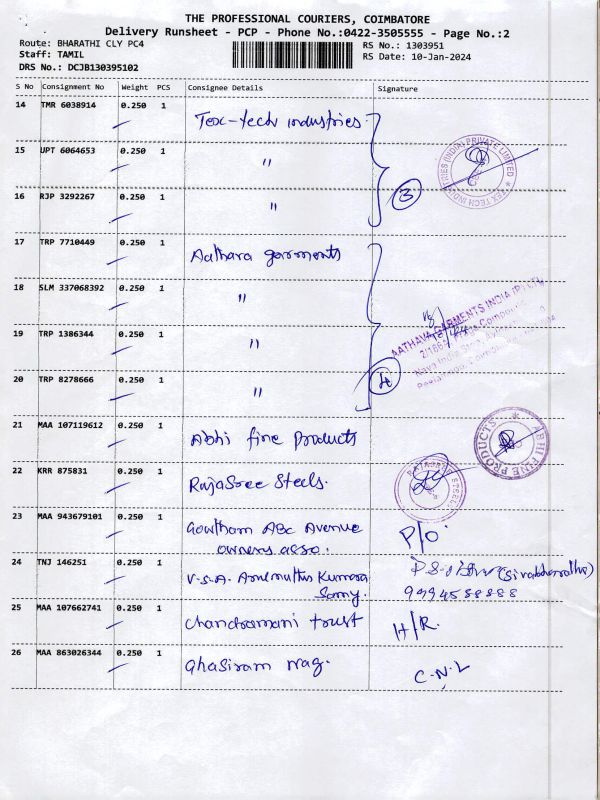 THE PROFESSIONAL COURIERS, COIMBATORE
Delivery Runsheet - PCP - Phone No.:0422-3505555 - Page No.:2
Route: BHARATHI CLY PC4
RS No.: 1303951
Staff: TAMIL
RS Date: 10-Jan-2024
DRS No.: DCJB130395102
S No Consignment No Weight PCS Consignee Details Signature
14 TMR 6038914 0.250 1 Tex-tech industries
15 UPT 6064653 0.250 1 "
16 RJP 3292267 0.250 1 " 3
TEX TECH INDUSTRIES (INDIA) PRIVATE LIMITED
17 TRP 7710449 0.250 1 Aathava garments
18 SLM 337068392 0.250 1 "
19 TRP 1386344 0.250 1 "
20 TRP 8278666 0.250 1 " 4
AATHAVA GARMENTS INDIA (P) LTD
21 MAA 107119612 0.250 1 Abhi fine products
ABHI FINE PRODUCTS
22 KRR 875831 0.250 1 RajaSree Steels.
RAJASREE STEELS
23 MAA 943679101 0.250 1 Gowtham ABC Avenue
owners asso. P/O
24 TNJ 146251 0.250 1 V.S.A. Arulmuthu Kumara
Samy. (Sivabharathi)
9994588888
25 MAA 107662741 0.250 1 Chandramani trust H/R.
26 MAA 863026344 0.250 1 Ghasiram nag. C.N.L